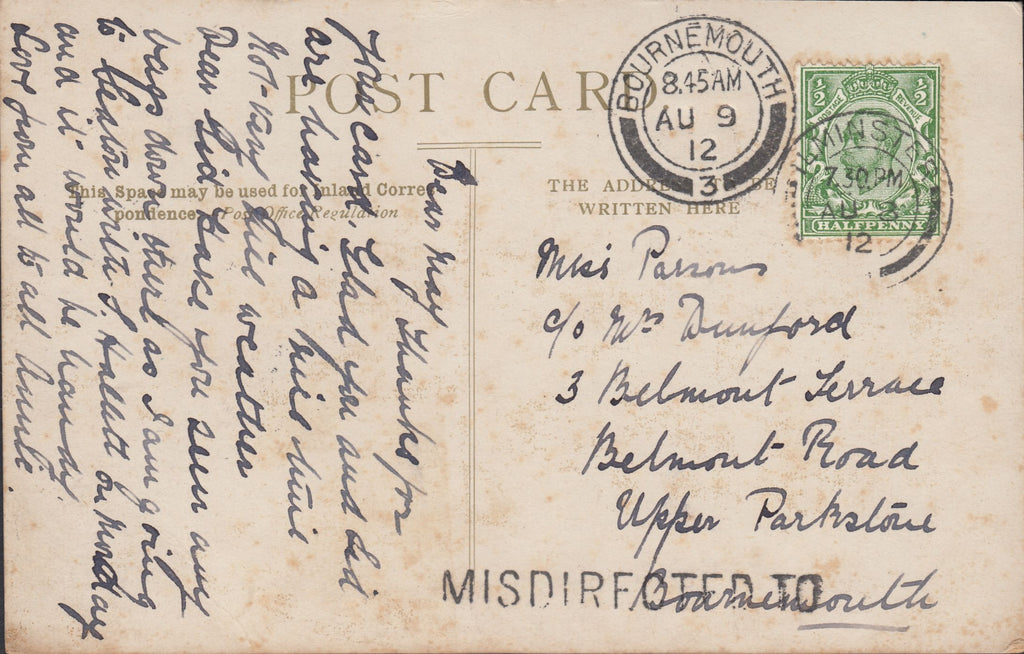 POST CARD
This Space may be used for Inland Corres-
pondence. (Post Office Regulation
THE ADDRE BE
WRITTEN HERE
BOURNEMOUTH
8.45AM
AU 9
12
3
AXMINSTER
7.30PM
AU 8
12
½ ½
POSTAGE REVENUE
HALFPENNY
Dear May
Thanks for
Card. Glad you and Sid
are having a nice time
Not very nice weather
Dear Sid Have you seen any
bags down there as I am going
to Seaton with S. Hallett on Monday
and it would be handy.
Love from all to all Annie.
Miss Parsons
c/o Mrs Dunford
3 Belmont Terrace
Belmont Road
Upper Parkstone
Bournemouth
MISDIRECTED TO